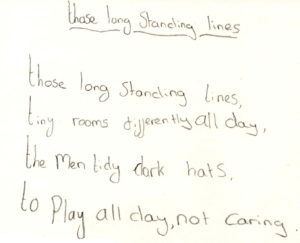 those long Standing lines
those long Standing lines,
tiny rooms differently all day,
the Men tidy dark hats,
to Play all day, not caring.